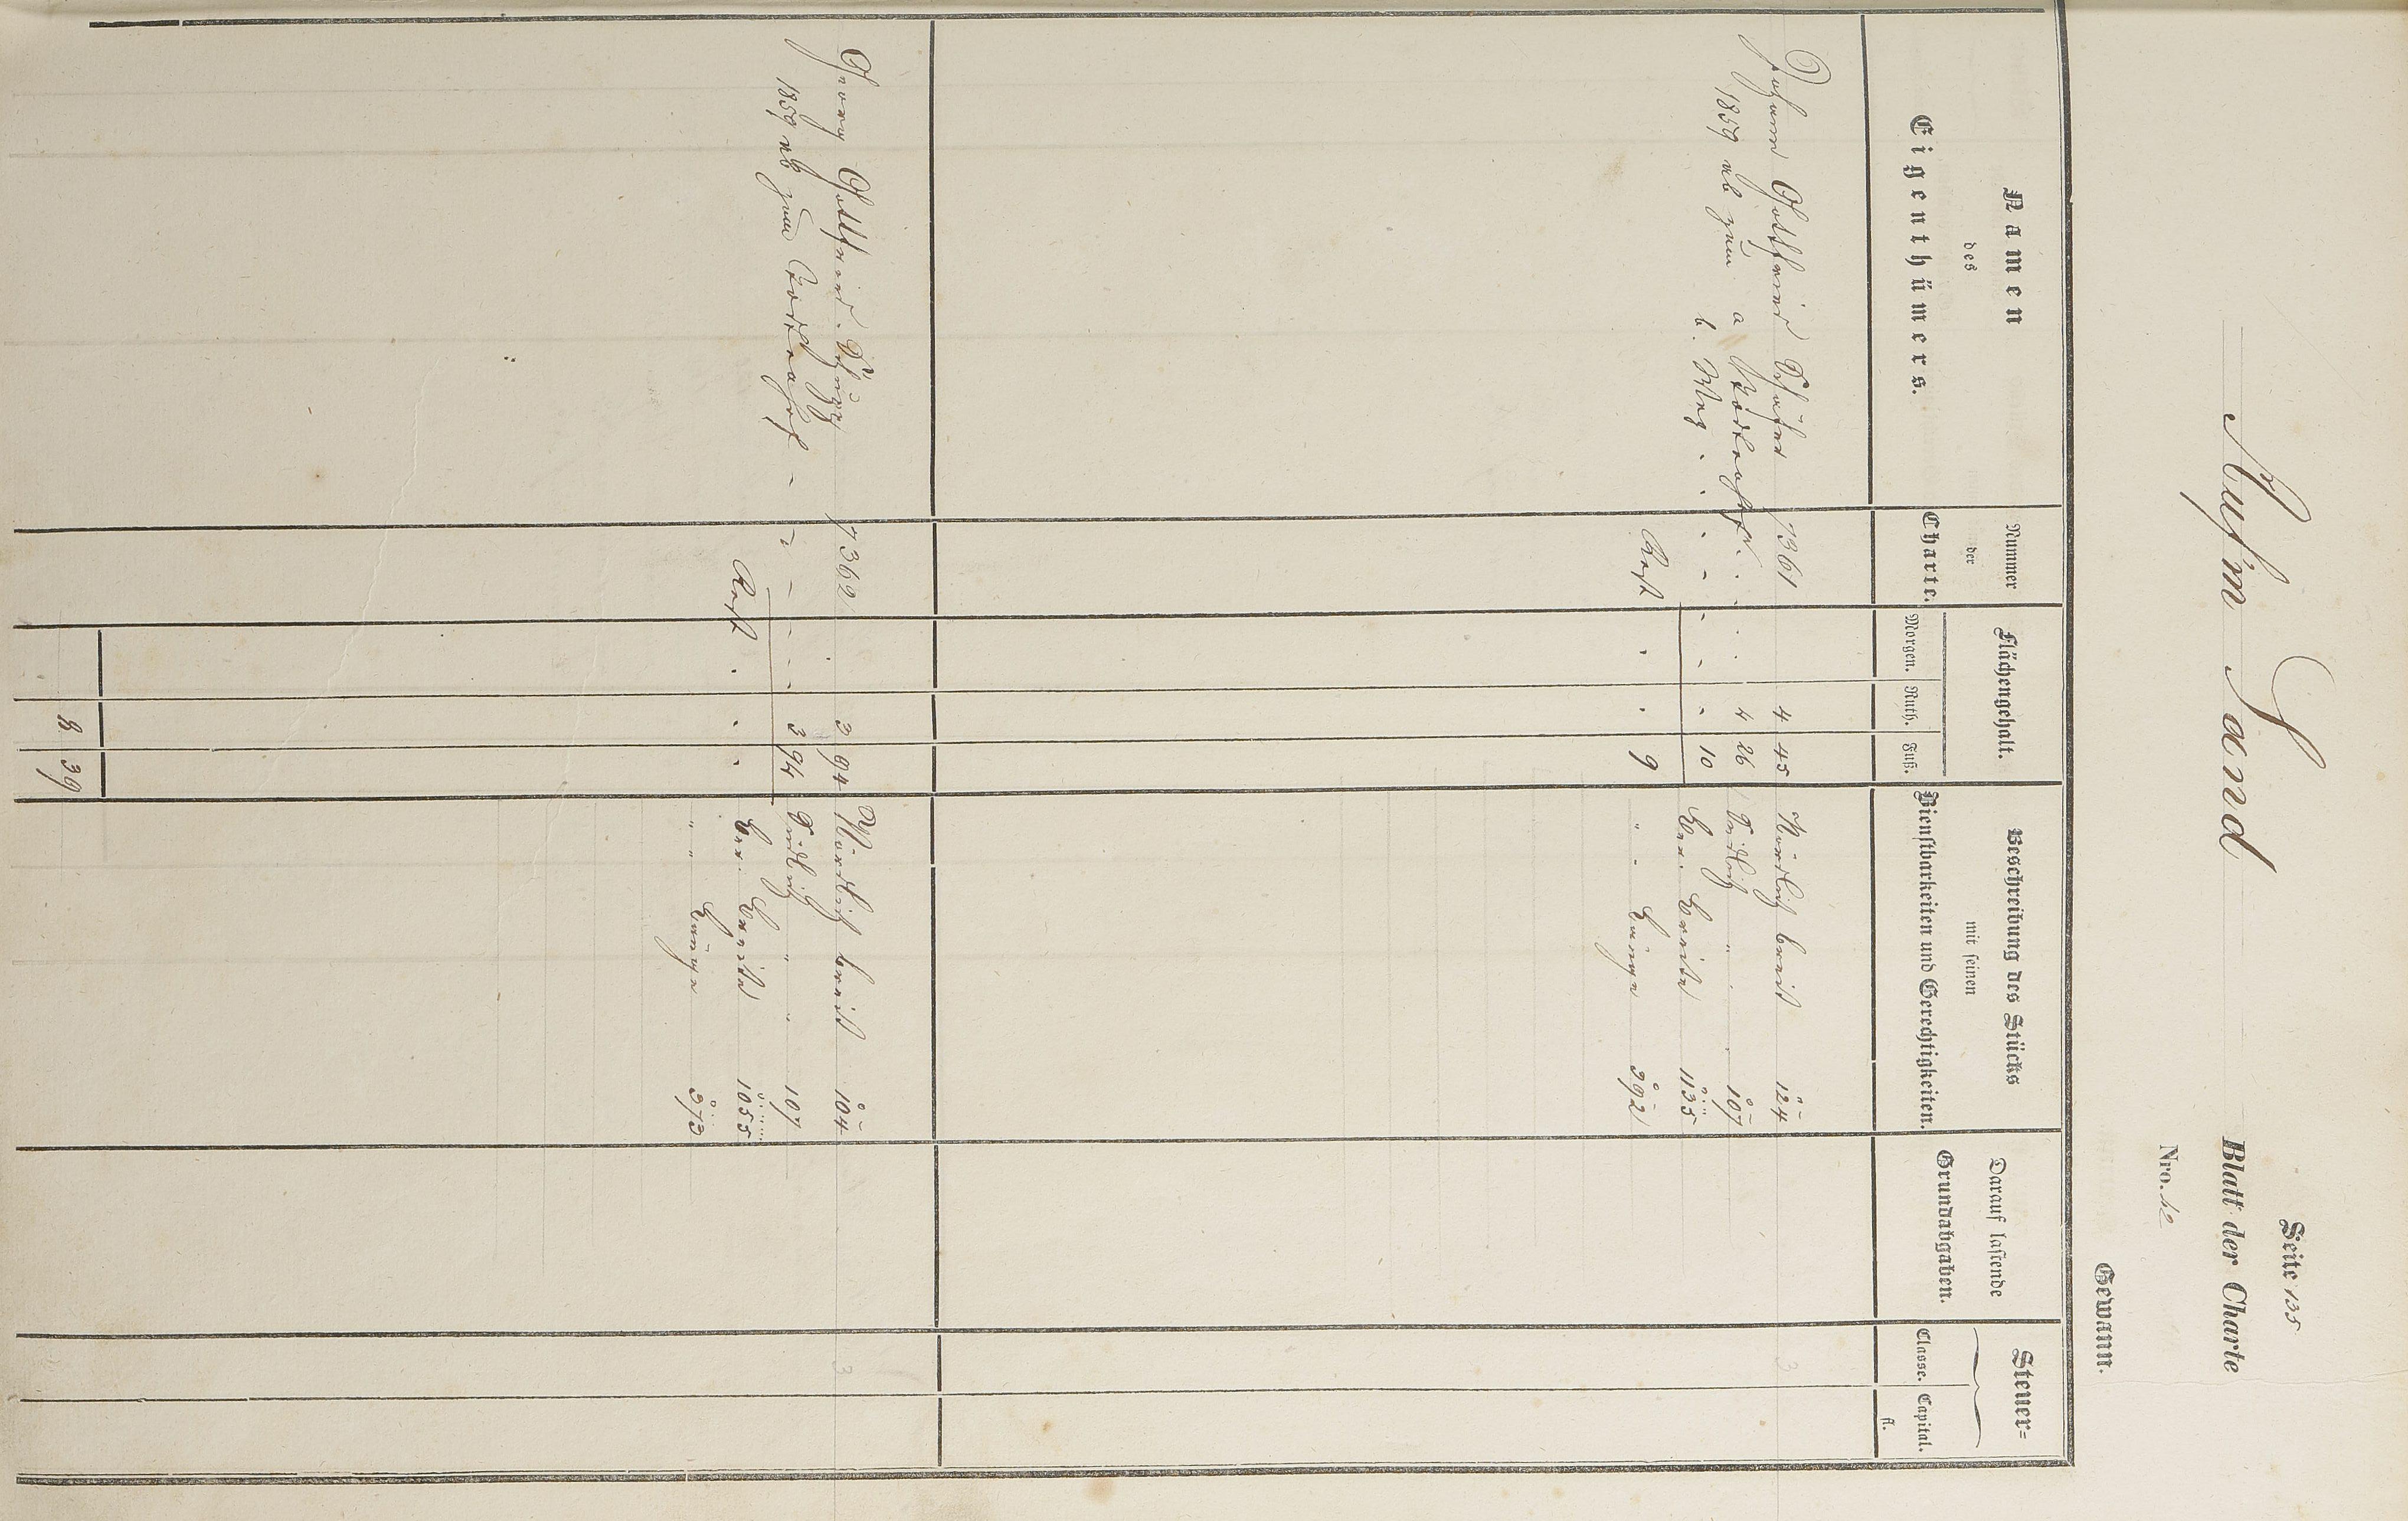 Seite 135
Auf'm Sand Blatt der Charte
Nro. 12
Gewann.
Namen
des
Eigenthümers.
Nummer
der
Charte.
Flächengehalt.
Morgen. Ruth. Fuß.
Beschreibung des Stücks
mit seinen
Dienstbarkeiten und Gerechtigkeiten.
Darauf lastende
Grundabgaben.
Steuer=
Classe. Capital.
fl.
Johann Gottfried Schäfer 1361 4 45 Nördlich breit 124 3
1859 ab zum a 4 26 Südlich " 107
b. Weg 10 Ver. Breite 1135
Rest 9 " " Länge 392
Georg Gottfried 1362 3 94 Nördlich breit 104 3
1859 ab zum 3 94 Südlich " " 107
Rest Ver. Breite 1055
" " Länge 373
8 39